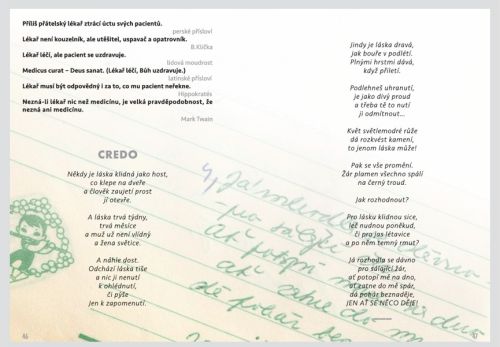 Příliš přátelský lékař ztrácí úctu svých pacientů.
perské přísloví
Lékař není kouzelník, ale utěšitel, uspavač a opatrovník.
B.Klička
Lékař léčí, ale pacient se uzdravuje.
lidová moudrost
Medicus curat – Deus sanat. (Lékař léčí, Bůh uzdravuje.)
latinské přísloví
Lékař musí být odpovědný i za to, co mu pacient neřekne.
Hippokratés
Nezná-li lékař nic než medicínu, je velká pravděpodobnost, že
nezná ani medicínu.
Mark Twain
CREDO
Někdy je láska klidná jako host,
co klepe na dveře
a člověk zaujetí prost
jí otevře.
A láska trvá týdny,
trvá měsíce
a muž už není vlídný
a žena světice.
A náhle dost.
Odchází láska tiše
a nic jí nenutí
k ohlédnutí,
či pýše
Jen k zapomenutí.
46
Jindy je láska dravá,
jak bouře v podletí.
Plnými hrstmi dává,
když přiletí.
Podlehneš uhranutí,
je jako divý proud
a třeba tě to nutí
ji odmítnout...
Květ světlemodré růže
dá rozkvést kamení,
to jenom láska může!
Pak se vše promění.
Žár plamen všechno spálí
na černý troud.
Jak rozhodnout?
Pro lásku klidnou sice,
leč nudnou poněkud,
či pro jas létavice
a po něm temný rmut?
Já rozhodla se dávno
pro sálající žár,
ať potopí mě na dno,
ať zatne do mě spár,
dá pohár beznaděje,
JEN AŤ SE NĚCO DĚJE!